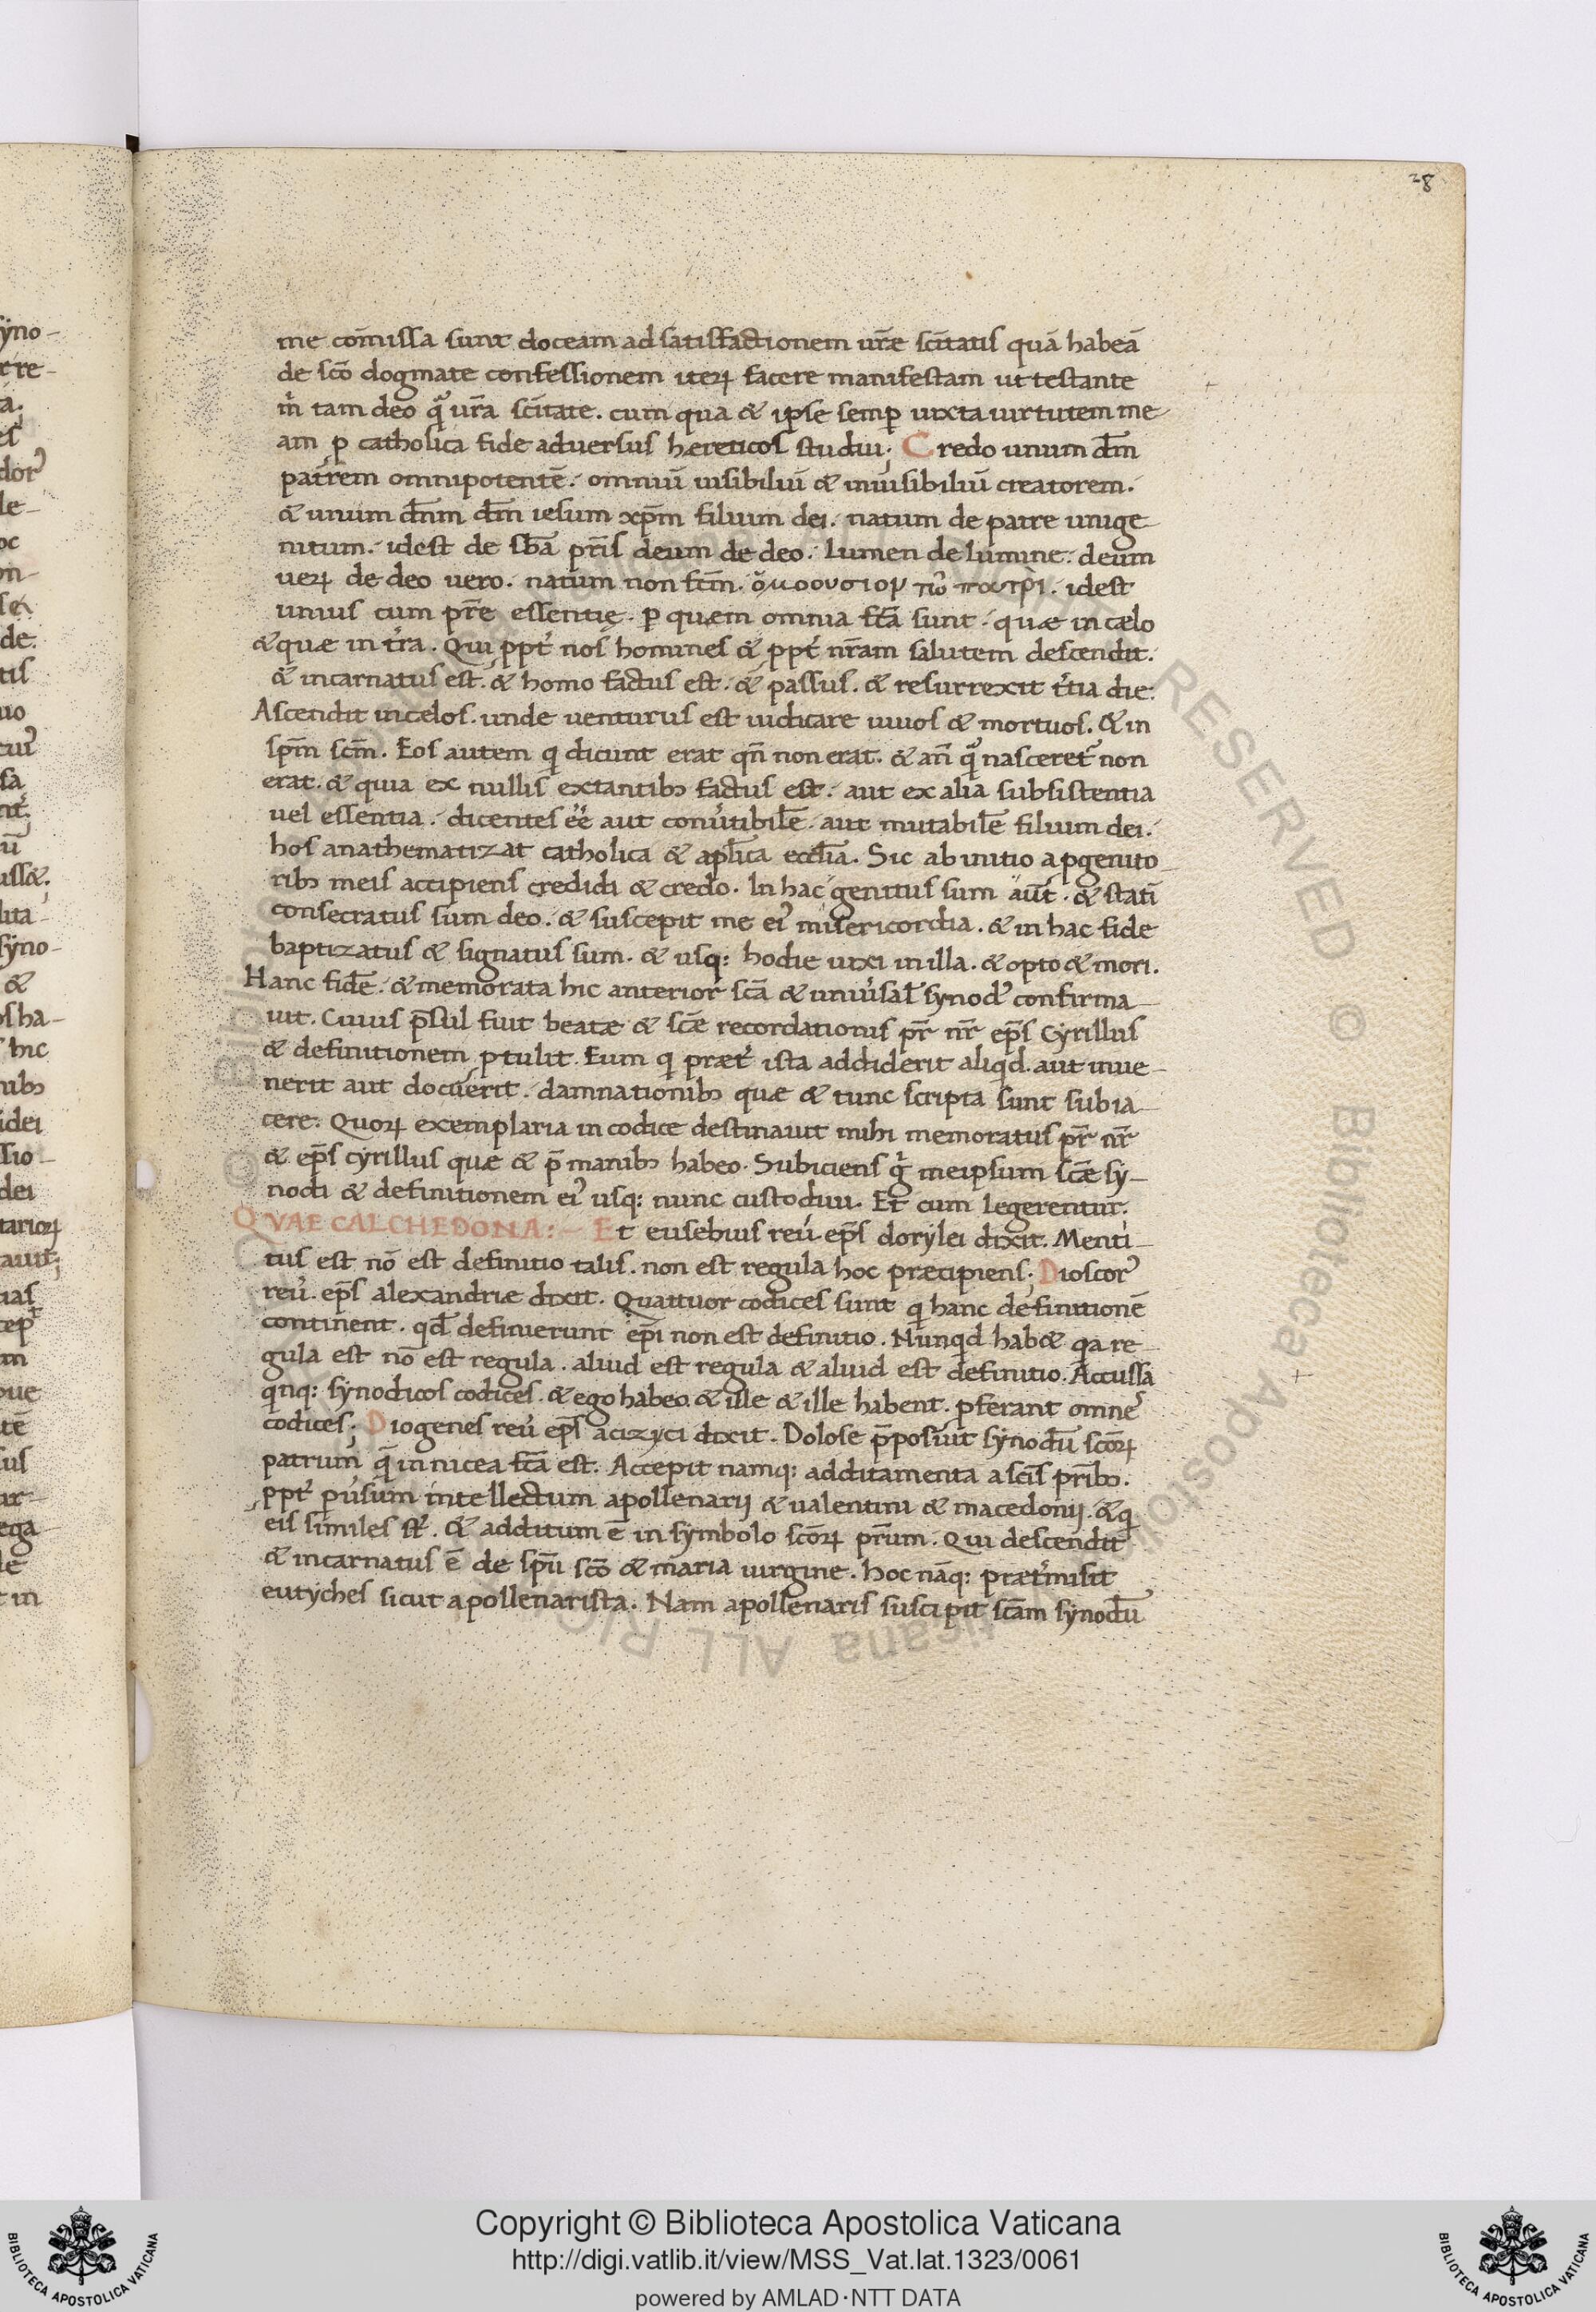 28
me cōmissa sunt doceam ad satisfactionem ur̄æ sc̄itatis quā habeā
de sc̄o dogmate confessionem iteꝝ facere manifestam ut testante
m̄ tam deo qͣ ur̄a sc̄itate. cum qua & ipse semꝑ iuxta uirtutem me
am ꝑ catholica fide aduersus hæreticos studui; Credo unum dm̄
patrem omnipotentē. omniū uisibiliū & inuisibiliū creatorem.
& unum dn̄m dm̄ iesum xp̄m filium dei. natum de patre unige
nitum. idest de sb̄a pr̄is deum de deo. Lumen de lumine. deum
ueꝝ de deo uero. natum non fc̄m. ὁμοουσιον τῶ πατρὶ. idest
unius cum pr̄e essentię. ꝑ quem omnia fc̄a sunt. quæ in cælo
& quæ in tr̄a. Qui ꝓpt̄ nos homines & ꝓpt̄ nr̄am salutem descendit.
& incarnatus est. & homo factus est. & passus. & resurrexit t̄tia die.
Ascendit in celos. unde uenturus est iudicare uiuos & mortuos. & in
sp̄m sc̄m. Eos autem q dicunt erat qn̄ non erat. & an̄ qͣ nasceret᷑ non
erat. & quia ex nullis extantibꝫ factus est. aut ex alia subsistentia
uel essentia. dicentes ee᷑ aut conu̓tibilē. aut mutabilē filium dei.
hos anathematizat catholica & apl̄ica eccl̄ia. Sic ab initio a ꝓgenito
ribꝫ meis accipiens credidi & credo. In hac genitus sum aut̄. & statī
consecratus sum deo. & suscepit me ei᷒ misericordia. & in hac fide
baptizatus & signatus sum. & usq: hodie uixi in illa. & opto & mori.
Hanc fidē. & memorata hic anterior̄ sc̄a & uniu̓sal̄ synod᷒ confirma
uit. Cuius p̄sul fuit beatæ & sc̄æ recordationis pr̄ nr̄ ep̄s Cyrillus
& definitionem ꝓtulit. Eum q præt̄ ista addiderit aliqd. aut inue
nerit aut docuerit. damnationibꝫ quæ & tunc scripta sunt subia
cere. Quoꝝ exemplaria in codice destinauit mihi memoratus pr̄ nr̄
& ep̄s cyrillus quæ & p̄ manibꝫ habeo. Subiciens gͦ meipsum sc̄æ sy
nodi & definitionem ei᷒ usq: nunc custodiui. Et cum legerentur.
QVAE CALCHEDONA:- Et eusebius reu̓. ep̄s dorylei dixit. Menti
tus est nō est definitio talis. non est regula hoc præcipiens; Dioscor᷒
reu̓. ep̄s alexandriæ dixit. Quattuor codices sunt q hanc definitionē
continent. qd̄ definierunt ep̄i non est definitio. Nunqd hab& qa re
gula est nō est regula. aliud est regula & aliud est definitio. Accussa
qnq: synodicos codices. & ego habeo. & ille & ille habent. ꝓferant omne᷒
codices; Diogenes reu̓ ep̄s acizyci dixit. Dolose p̄posuit synodū sc̄oꝝ
patrum q̄ in nicea fc̄a est. Accepit namq: additamenta a sc̄is pr̄ibꝫ.
ꝓpt̄ pu̓sum intellectum apollenarij & ualentini & macedonij. & q
eis similes st̄. & additum ē in symbolo sc̄oꝝ pr̄um. Qui descendit
& incarnatus ē de sp̄u sc̄o & maria uirgine. hoc nāq: præt̓misit
eutyches sicut apollenarista. Nam apollenaris suscipit sc̄am synodū
Copyright © Biblioteca Apostolica Vaticana
http://digi.vatlib.it/view/MSS_Vat.lat.1323/0061
powered by AMLAD·NTT DATA